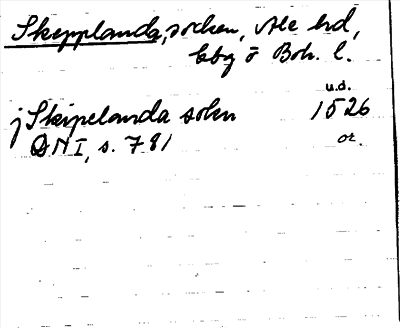 Skepplanda, socken, Ale hd,
Gbg o Boh. l.
u.d.
j Skipelanda sokn 1526
DN I, s. 781 or.